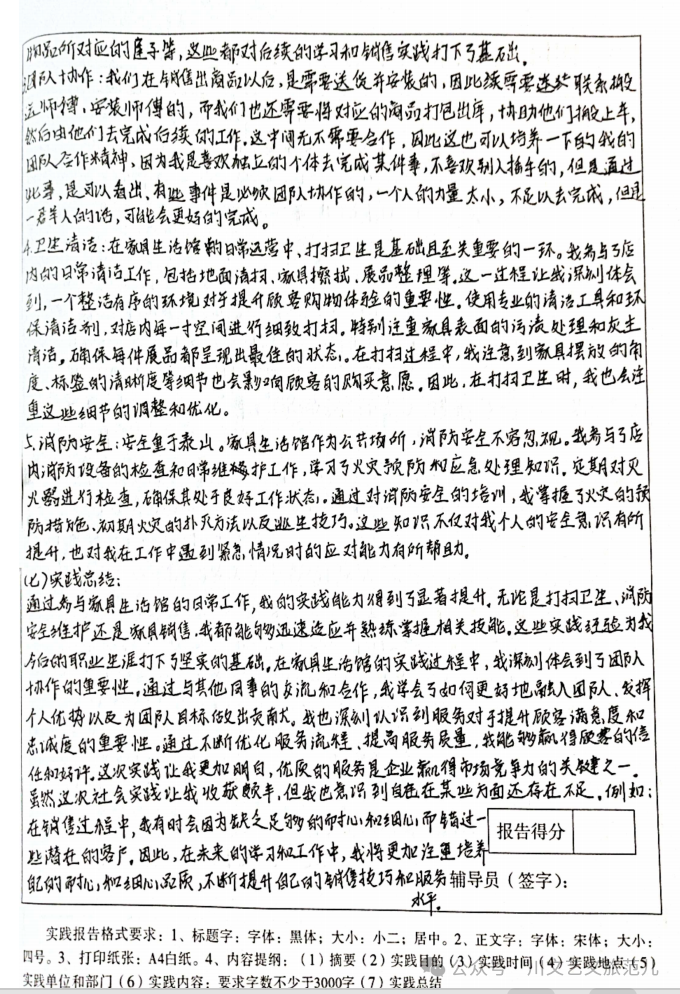 物品所对应的屋子等，这些都对后续的学习和销售实践打下了基础。
团队协作：我们在销售出商品以后，是需要送货并安装的，因此续需要联系搬
运师傅，安装师傅的，而我们也还需要将对应的商品打包出库，协助他们搬上车，
然后由他们去完成后续的工作。这中间无不需要合作，因此这也可以培养一下的我的
团队合作精神，因为我是喜欢独立的个体去完成某件事，不喜欢别人插手的，但是通过
此事，是可以看出，有些事件是必须团队协作的，一个人的力量太小，不足以去完成，但是
一群人的话，可能会更好的完成。
4.卫生清洁：在家具生活馆的日常运营中，打扫卫生是基础且至关重要的一环。我参与了店
内的日常清洁工作，包括地面清扫、家具擦拭、展品整理等。这一过程让我深刻体会
到，一个整洁有序的环境对于提升顾客购物体验的重要性。使用专业的清洁工具和环
保清洁剂，对店内每一寸空间进行细致打扫。特别注重家具表面的污渍处理和灰尘
清洁。确保每件展品都呈现出最佳的状态。在打扫过程中，我注意到家具摆放的角
度、标签的清晰度等细节也会影响顾客的购买意愿。因此，在打扫卫生时，我也会注
重这些细节的调整和优化。
5.消防安全：安全重于泰山。家具生活馆作为公共场所，消防安全不容忽视。我参与了店
内消防设备的检查和日常维护工作，学习了火灾预防和应急处理知识。定期对灭
火器进行检查，确保其处于良好工作状态。通过对消防安全的培训，我掌握了火灾的预
防措施、初期火灾的扑灭方法以及逃生技巧。这些知识不仅对我个人的安全意识有所
提升，也对我在工作中遇到紧急情况时的应对能力有所帮助。
(七)实践总结：
通过参与家具生活馆的日常工作，我的实践能力得到了显著提升。无论是打扫卫生、消防
安全维护还是家具销售，我都能够迅速适应并熟练掌握相关技能。这些实践经验为我
今后的职业生涯打下了坚实的基础。在家具生活馆的实践过程中，我深刻体会到了团队
协作的重要性。通过与其他同事的交流和合作，我学会了如何更好地融入团队、发挥
个人优势以及为团队目标做出贡献。我也深刻认识到服务对于提升顾客满意度和
忠诚度的重要性。通过不断优化服务流程、提高服务质量，我能够赢得顾客的信
任和好评。这次实践让我更加明白，优质的服务是企业赢得市场竞争力的关键之一。
虽然这次社会实践让我收获颇丰，但我也意识到自己在某些方面还存在不足。例如：
在销售过程中，我有时会因为缺乏足够的耐心和细心而错过一
些潜在的客户。因此，在未来的学习和工作中，我将更加注重培养
自己的耐心和细心品质，不断提升自己的销售技巧和服务
水平。
报告得分
辅导员（签字）：
实践报告格式要求：1、标题字：字体：黑体；大小：小二；居中。2、正文字：字体：宋体；大小：
四号。3、打印纸张：A4白纸。4、内容提纲：（1）摘要（2）实践目的（3）实践时间（4）实践地点（5）
实践单位和部门（6）实践内容：要求字数不少于3000字（7）实践总结
公众号 川文艺文旅范儿